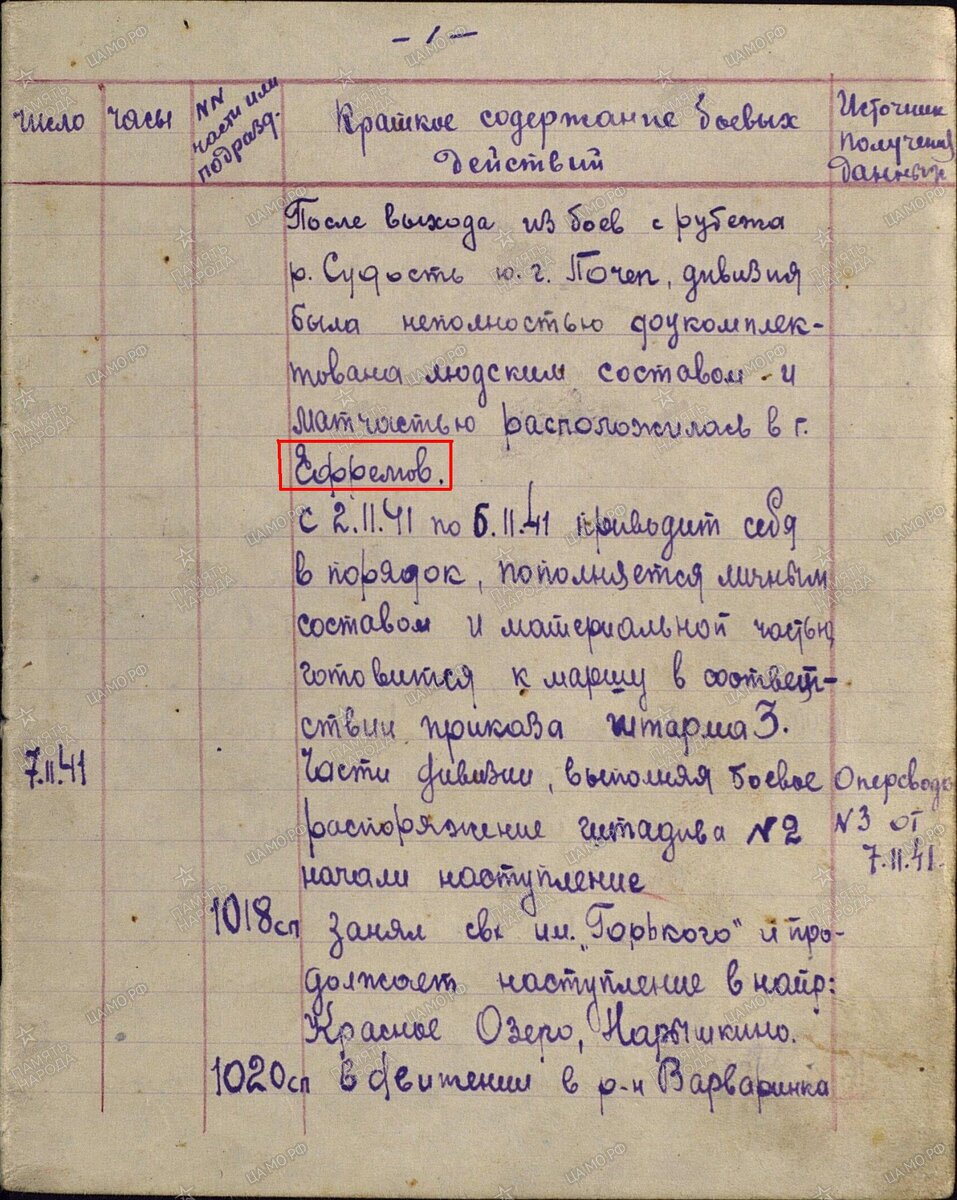 - 1 -
Число
Часы
NN части или подразд.
Краткое содержание боевых
действий
Источник
получения
данных
После выхода из боев с рубежа
р. Судость ю. г. Почеп, дивизия
была неполностью доукомплек-
тована людским составом и
матчастью расположилась в г.
Ефремов.
С 2.11.41 по 6.11.41 приводит себя
в порядок, пополняется личным
составом и материальной частью
готовится к маршу в соответ-
ствии приказа штарма 3.
7.11.41
Части дивизии, выполняя боевое
распоряжение штадива N2
начали наступление
Оперсводка
N3 от
7.11.41.
1018сп занял свх им. "Горького" и про-
должает наступление в напр:
Красное Озеро, Нарышкино.
1020сп в движении в р-н Варваринка